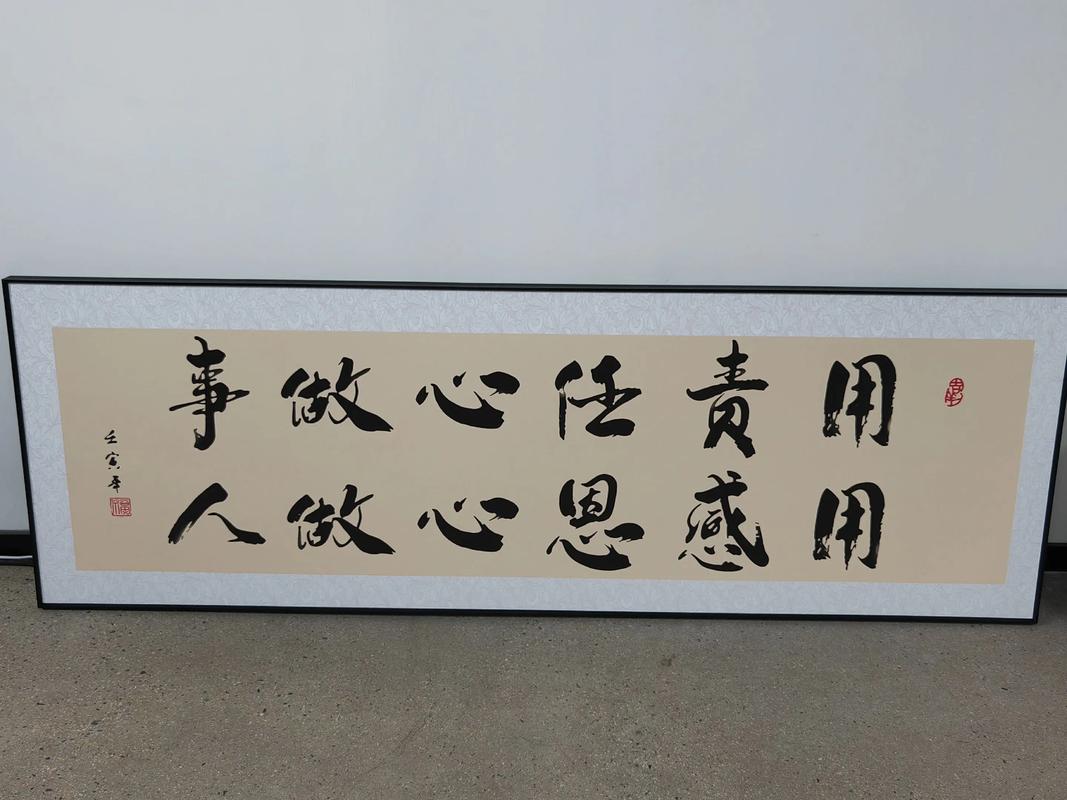 用責任心做事
用感恩心做人
壬寅年